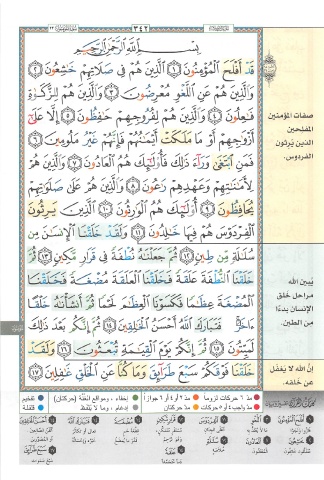 ٣٤٢
بِسْمِ اللَّهِ الرَّحْمَٰنِ الرَّحِيمِ
قَدْ أَفْلَحَ الْمُؤْمِنُونَ ﴿١﴾ الَّذِينَ هُمْ فِي صَلَاتِهِمْ خَاشِعُونَ ﴿٢﴾
وَالَّذِينَ هُمْ عَنِ اللَّغْوِ مُعْرِضُونَ ﴿٣﴾ وَالَّذِينَ هُمْ لِلزَّكَاةِ
فَاعِلُونَ ﴿٤﴾ وَالَّذِينَ هُمْ لِفُرُوجِهِمْ حَافِظُونَ ﴿٥﴾ إِلَّا عَلَىٰ
أَزْوَاجِهِمْ أَوْ مَا مَلَكَتْ أَيْمَانُهُمْ فَإِنَّهُمْ غَيْرُ مَلُومِينَ ﴿٦﴾
فَمَنِ ابْتَغَىٰ وَرَاءَ ذَٰلِكَ فَأُولَٰئِكَ هُمُ الْعَادُونَ ﴿٧﴾ وَالَّذِينَ هُمْ
لِأَمَانَاتِهِمْ وَعَهْدِهِمْ رَاعُونَ ﴿٨﴾ وَالَّذِينَ هُمْ عَلَىٰ صَلَوَاتِهِمْ
يُحَافِظُونَ ﴿٩﴾ أُولَٰئِكَ هُمُ الْوَارِثُونَ ﴿١٠﴾ الَّذِينَ يَرِثُونَ
الْفِرْدَوْسَ هُمْ فِيهَا خَالِدُونَ ﴿١١﴾ وَلَقَدْ خَلَقْنَا الْإِنسَانَ مِن
سُلَالَةٍ مِّن طِينٍ ﴿١٢﴾ ثُمَّ جَعَلْنَاهُ نُطْفَةً فِي قَرَارٍ مَّكِينٍ ﴿١٣﴾ ثُمَّ
خَلَقْنَا النُّطْفَةَ عَلَقَةً فَخَلَقْنَا الْعَلَقَةَ مُضْغَةً فَخَلَقْنَا
الْمُضْغَةَ عِظَامًا فَكَسَوْنَا الْعِظَامَ لَحْمًا ثُمَّ أَنشَأْنَاهُ خَلْقًا
آخَرَ ۚ فَتَبَارَكَ اللَّهُ أَحْسَنُ الْخَالِقِينَ ﴿١٤﴾ ثُمَّ إِنَّكُم بَعْدَ ذَٰلِكَ
لَمَيِّتُونَ ﴿١٥﴾ ثُمَّ إِنَّكُمْ يَوْمَ الْقِيَامَةِ تُبْعَثُونَ ﴿١٦﴾ وَلَقَدْ
خَلَقْنَا فَوْقَكُمْ سَبْعَ طَرَائِقَ وَمَا كُنَّا عَنِ الْخَلْقِ غَافِلِينَ ﴿١٧﴾
صفات المؤمنين
المفلحين
الذين يَرثون
الفردوس.
يُبين الله
مراحل خلق
الإنسان بدءًا
من الطين.
إنَّ الله لا يَغفل
عن خلقه.
مدّ ٦ حركات لزوماً
مدّ ٢ أو ٤ أو ٦ جوازاً
إخفاء، ومواقع الغنَّة (حركتان)
تفخيم
مدّ واجب ٤ أو ٥ حركات
مدّ حركتان
إدغام، وما لا يُلفظ
قلقلة